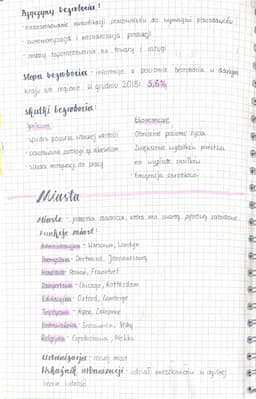 Przyczyny bezrobocia:
- niedostosowanie kwalifikacji pracowników do wymagań pracodawców
- automatyzacja i mechanizacja produkcji
- zmiany zapotrzebowania na towary i usługi
Stopa bezrobocia - informuje o poziomie bezrobocia w danym
kraju lub regionie. W grudniu 2018r 5,8%
Skutki bezrobocia:
Społeczne
Ekonomiczne
- spadek poczucia własnej wartości
- Obniżenie poziomu życia
- Zwiększenie wydatków państwa
na wypłatę zasiłków
- spadek motywacji do pracy
- Emigracja zarobkowa
Miasta
Miasto - jednostka osadnicza, która ma zwartą zabudowę.
Funkcje miast:
Administracyjna - Warszawa, Londyn
Przemysłowa - Dortmund, Johannesburg
Handlowa - Poznań, Frankfurt
Transportowa - Chicago, Rotterdam
Edukacyjna - Oxford, Cambridge
Turystyczna - Ateny, Zakopane
Uzdrowiskowa - Szczawnica, Vichy
Religijna - Częstochowa, Mekka
Urbanizacja - rozwój miast
Wskaźnik urbanizacji - udział mieszkańców w ogólnej
liczbie ludności